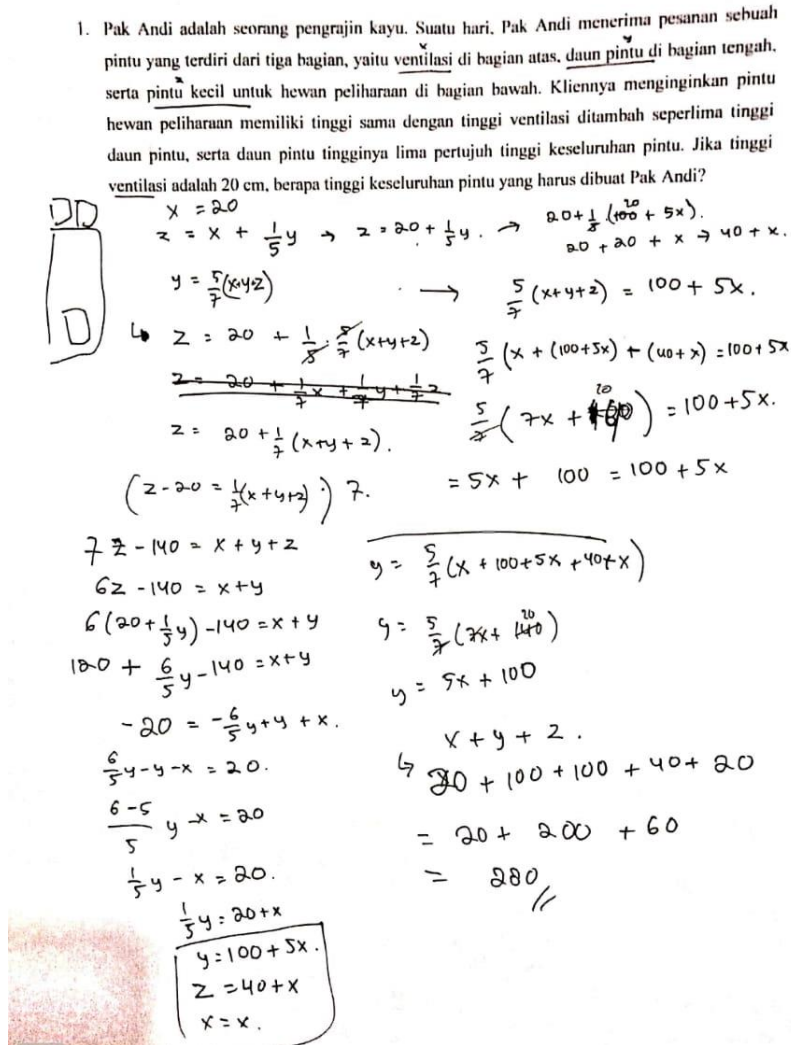 1. Pak Andi adalah seorang pengrajin kayu. Suatu hari, Pak Andi menerima pesanan sebuah
pintu yang terdiri dari tiga bagian, yaitu ventilasi di bagian atas, daun pintu di bagian tengah,
serta pintu kecil untuk hewan peliharaan di bagian bawah. Kliennya menginginkan pintu
hewan peliharaan memiliki tinggi sama dengan tinggi ventilasi ditambah seperlima tinggi
daun pintu, serta daun pintu tingginya lima pertujuh tinggi keseluruhan pintu. Jika tinggi
ventilasi adalah 20 cm, berapa tinggi keseluruhan pintu yang harus dibuat Pak Andi?
x = 20
z = x + 1/5 y → z = 20 + 1/5 y. →
y = 5/7 (x+y+z)
↳ z = 20 + 1/5 · 5/7 (x+y+z)
z = 20 + 1/7 x + 1/7 y + 1/7 z
z = 20 + 1/7 (x+y+z).
(z-20 = 1/7 (x+y+z)) 7.
7z - 140 = x + y + z
6z - 140 = x+y
6(20+1/5 y) - 140 = x + y
120 + 6/5 y - 140 = x+y
-20 = -6/5 y + y + x.
6/5 y - y - x = 20.
6-5/5 y - x = 20
1/5 y - x = 20.
1/5 y = 20+x
y = 100 + 5x.
z = 40+x
x = x.
20 + 1/5 (100 + 5x).
20 + 20 + x → 40 + x.
→ 5/7 (x+y+z) = 100 + 5x.
5/7 (x + (100+5x) + (40+x) = 100+5x
5/7 (7x + 20) = 100+5x.
= 5x + 100 = 100 + 5x
y = 5/7 (x + 100+5x + 40+x)
y = 5/7 (7x + 140) 20
y = 5x + 100
x + y + z.
↳ 20 + 100 + 100 + 40 + 20
= 20 + 200 + 60
= 280 //